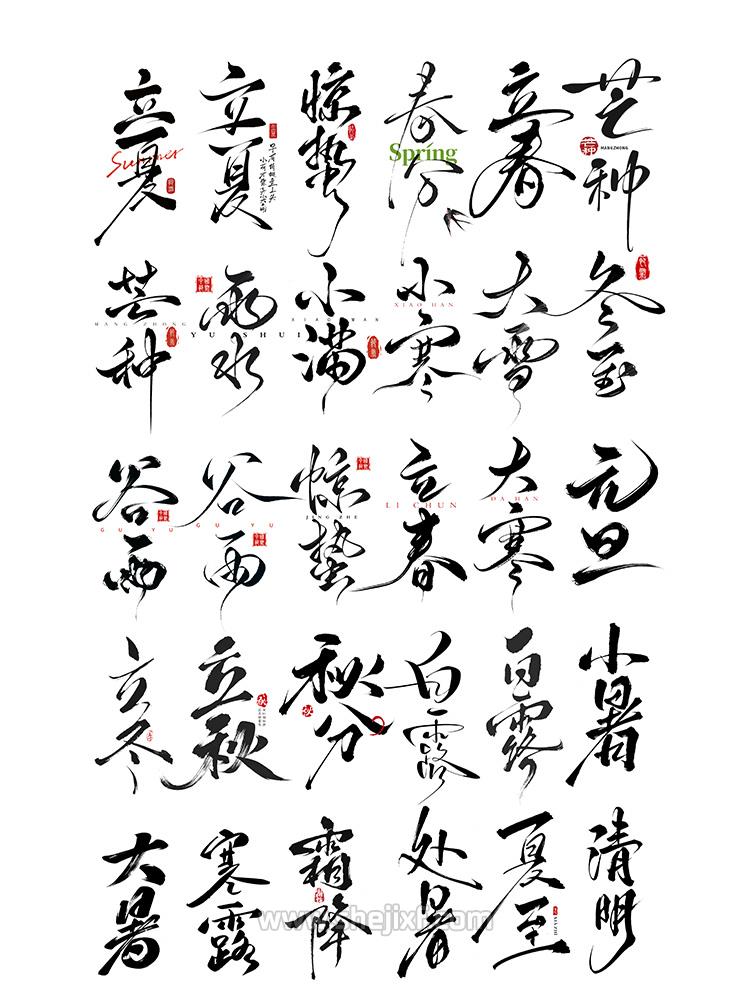 立夏
Summer
立夏
惊蛰
春分
Spring
立春
芒种
芒种
MANGZHONG
芒种
MANG ZHONG
雨水
YU SHUI
小满
XIAO MAN
小寒
XIAO HAN
大雪
冬至
谷雨
GU YU
谷雨
GU YU
惊蛰
JING ZHE
立春
LI CHUN
大寒
DA HAN
元旦
立冬
立秋
秋
秋分
白露
白露
小暑
大暑
寒露
霜降
处暑
夏至
XIA ZHI
清明